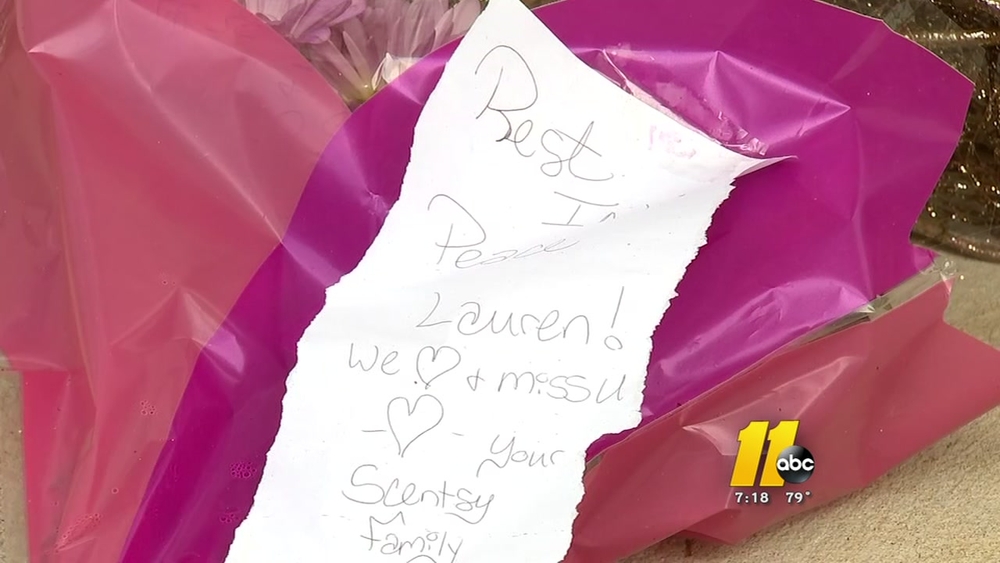 Rest
In
Peace
Lauren!
We ♡ & miss U
-♡- your
Scentsy
family
11 abc
7:18 79°